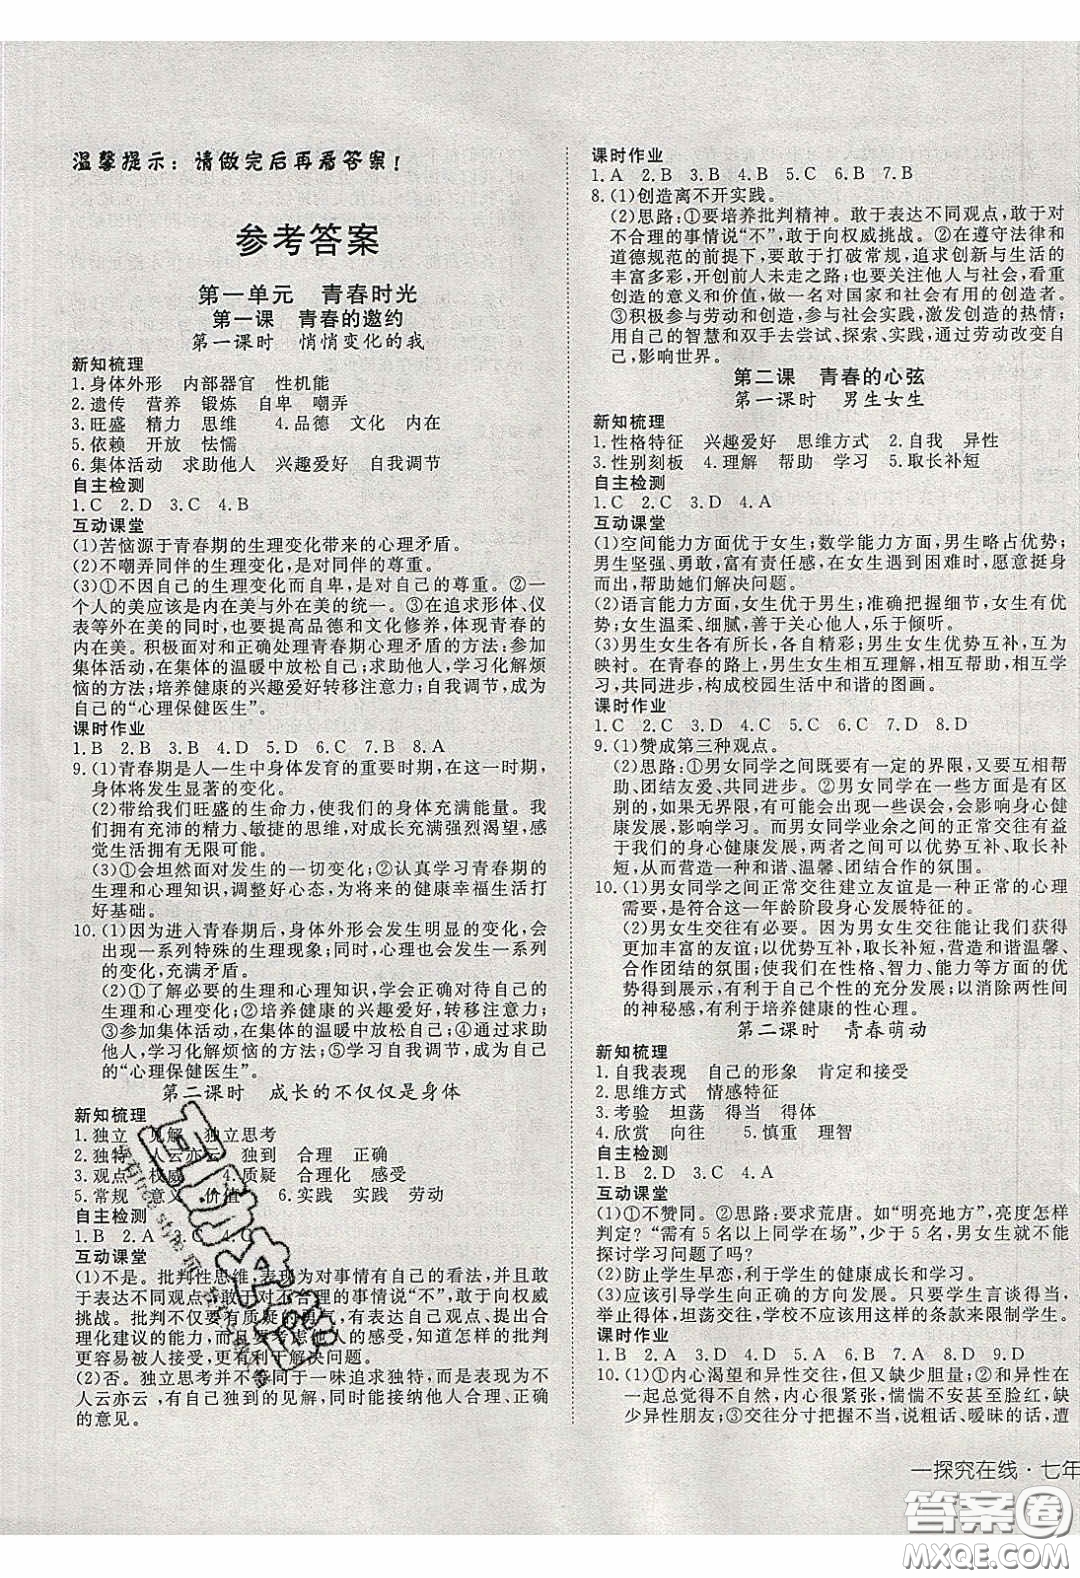 温馨提示：请做完后再看答案！
参考答案
第一单元　青春时光
第一课　青春的邀约
第一课时　悄悄变化的我
新知梳理
1.身体外形　内部器官　性机能
2.遗传　营养　锻炼　自卑　嘲弄
3.旺盛　精力　思维　4.品德　文化　内在
5.依赖　开放　怯懦
6.集体活动　求助他人　兴趣爱好　自我调节
自主检测
1.C　2.D　3.C　4.B
互动课堂
(1)苦恼源于青春期的生理变化带来的心理矛盾。
(2)不嘲弄同伴的生理变化，是对同伴的尊重。
(3)①不因自己的生理变化而自卑，是对自己的尊重。②一
个人的美应该是内在美与外在美的统一。③在追求形体、仪
表等外在美的同时，也要提高品德和文化修养，体现青春的
内在美。积极面对和正确处理青春期心理矛盾的方法：参加
集体活动，在集体的温暖中放松自己；求助他人，学习化解烦
恼的方法；培养健康的兴趣爱好转移注意力；自我调节，成为
自己的“心理保健医生”。
课时作业
1.B　2.B　3.D　4.B　5.D　6.D　7.B　8.A
9.(1)青春期是人一生中身体发育的重要时期，在这一时期，
身体将发生显著的变化。
(2)带给我们旺盛的生命力，使我们的身体充满能量。我
们拥有充沛的精力、敏捷的思维，对成长充满强烈渴望，感
觉生活拥有无限可能。
(3)①会坦然面对发生的一切变化；②认真学习青春期的
生理和心理知识，调整好心态，为将来的健康幸福生活打
好基础。
10.(1)因为进入青春期后，身体外形会发生明显的变化，会
出现一系列特殊的生理现象；同时，心理也会发生一系列
的变化，充满矛盾。
(2)①了解必要的生理和心理知识，学会正确对待自己的
生理和心理变化；②培养健康的兴趣爱好，转移注意力；
③参加集体活动，在集体的温暖中放松自己；④通过求助
他人，学习化解烦恼的方法；⑤学习自我调节，成为自己的
“心理保健医生”。
第二课时　成长的不仅仅是身体
新知梳理
1.独立　见解　独立思考
2.独特　人云亦云　独到　合理　正确
3.观点　权威　4.质疑　合理化　感受
5.常规　意义　价值　6.实践　实践　劳动
自主检测
1.B　2.A　3.D　4.C
互动课堂
(1)不是。批判性思维，表现为对事情有自己的看法，并且敢
于表达不同观点，敢于对不合理的事情说“不”，敢于向权威
挑战。批判不仅要有质疑的勇气，有表达自己观点、提出合
理化建议的能力，而且要考虑他人的感受，知道怎样的批判
更容易被人接受，更有利于解决问题。
(2)否。独立思考并不等同于一味追求独特，而是表现为不
人云亦云，有自己独到的见解，同时能接纳他人合理、正确
的意见。
课时作业
1.A　2.B　3.B　4.D　5.C　6.B　7.B
8.(1)创造离不开实践。
(2)思路：①要培养批判精神。敢于表达不同观点，敢于对
不合理的事情说“不”，敢于向权威挑战。②在遵守法律和
道德规范的前提下，要敢于打破常规，追求创新与生活的
丰富多彩，开创前人未走之路；要关注他人与社会，看重
创造的意义和价值，做一名对国家和社会有用的创造者。
③积极参与劳动和创造，参与社会实践，激发创造的热情；
用自己的智慧和双手去尝试、探索、实践，通过劳动改变自
己，影响世界。
第二课　青春的心弦
第一课时　男生女生
新知梳理
1.性格特征　兴趣爱好　思维方式　2.自我　异性
3.性别刻板　4.理解　帮助　学习　5.取长补短
自主检测
1.C　2.D　3.D　4.A
互动课堂
(1)空间能力方面优于女生；数学能力方面，男生略占优势；
男生坚强、勇敢，富有责任感，在女生遇到困难时，愿意挺身
而出，帮助她们解决问题。
(2)语言能力方面，女生优于男生；准确把握细节，女生有优
势；女生温柔、细腻，善于关心他人，乐于倾听。
(3)男生女生各有所长，各自精彩；男生女生优势互补，互为
映衬。在青春的路上，男生女生相互理解，相互帮助，相互学
习，共同进步，构成校园生活中和谐的图画。
课时作业
1.C　2.C　3.D　4.B　5.A　6.C　7.D　8.D
9.(1)赞成第三种观点。
(2)思路：①男女同学之间既要有一定的界限，又要互相帮
助、团结友爱、共同进步。②男女同学在一些方面是有区
别的，如果无界限，有可能出现一些误会，会影响身心健
康发展，影响学习。而男女同学业余之间的正常交往有益
于我们的身心健康发展，两者之间可以优势互补、取长补
短，从而营造一种和谐、温馨、团结合作的氛围。
10.(1)男女同学之间正常交往建立友谊是一种正常的心理
需要，是符合这一年龄阶段身心发展特征的。
(2)男女生交往有必要。因为男女生交往可以使我们获得
更加丰富的友谊；可以优势互补，取长补短，营造和谐温馨、
合作团结的氛围；使我们在性格、智力、能力等方面的优势
得到展示，有利于自己个性的充分发展；以消除两性间的
的神秘感，有利于培养健康的性心理。
第二课时　青春萌动
新知梳理
1.自我表现　自己的形象　肯定和接受
2.思维方式　情感特征
3.考验　坦荡　得当　得体
4.欣赏　向往　5.慎重　理智
自主检测
1.B　2.D　3.C　4.A
互动课堂
(1)①不赞同。②思路：要求荒唐。如“明亮地方”，亮度怎样
判定？“需有5名以上同学在场”，少于5名，男女生就不能
探讨学习问题了吗？
(2)防止学生早恋，利于学生的健康成长和学习。
(3)应该引导学生向正确的方向发展。只要学生言谈得当、
举止得体、坦荡交往，学校不应该用这样的条款来限制学生。
课时作业
1.B　2.D　3.B　4.D　5.A　6.C　7.D　8.D　9.D
10.(1)①内心渴望和异性交往，但又缺少胆量；②与异性在
一起总觉得不自然，内心很紧张，惴惴不安甚至脸红，缺
少异性朋友；③交往分寸把握不当，说粗话、暧昧的话，遭
一探究在线·七年
答案圈
MXQE.COM